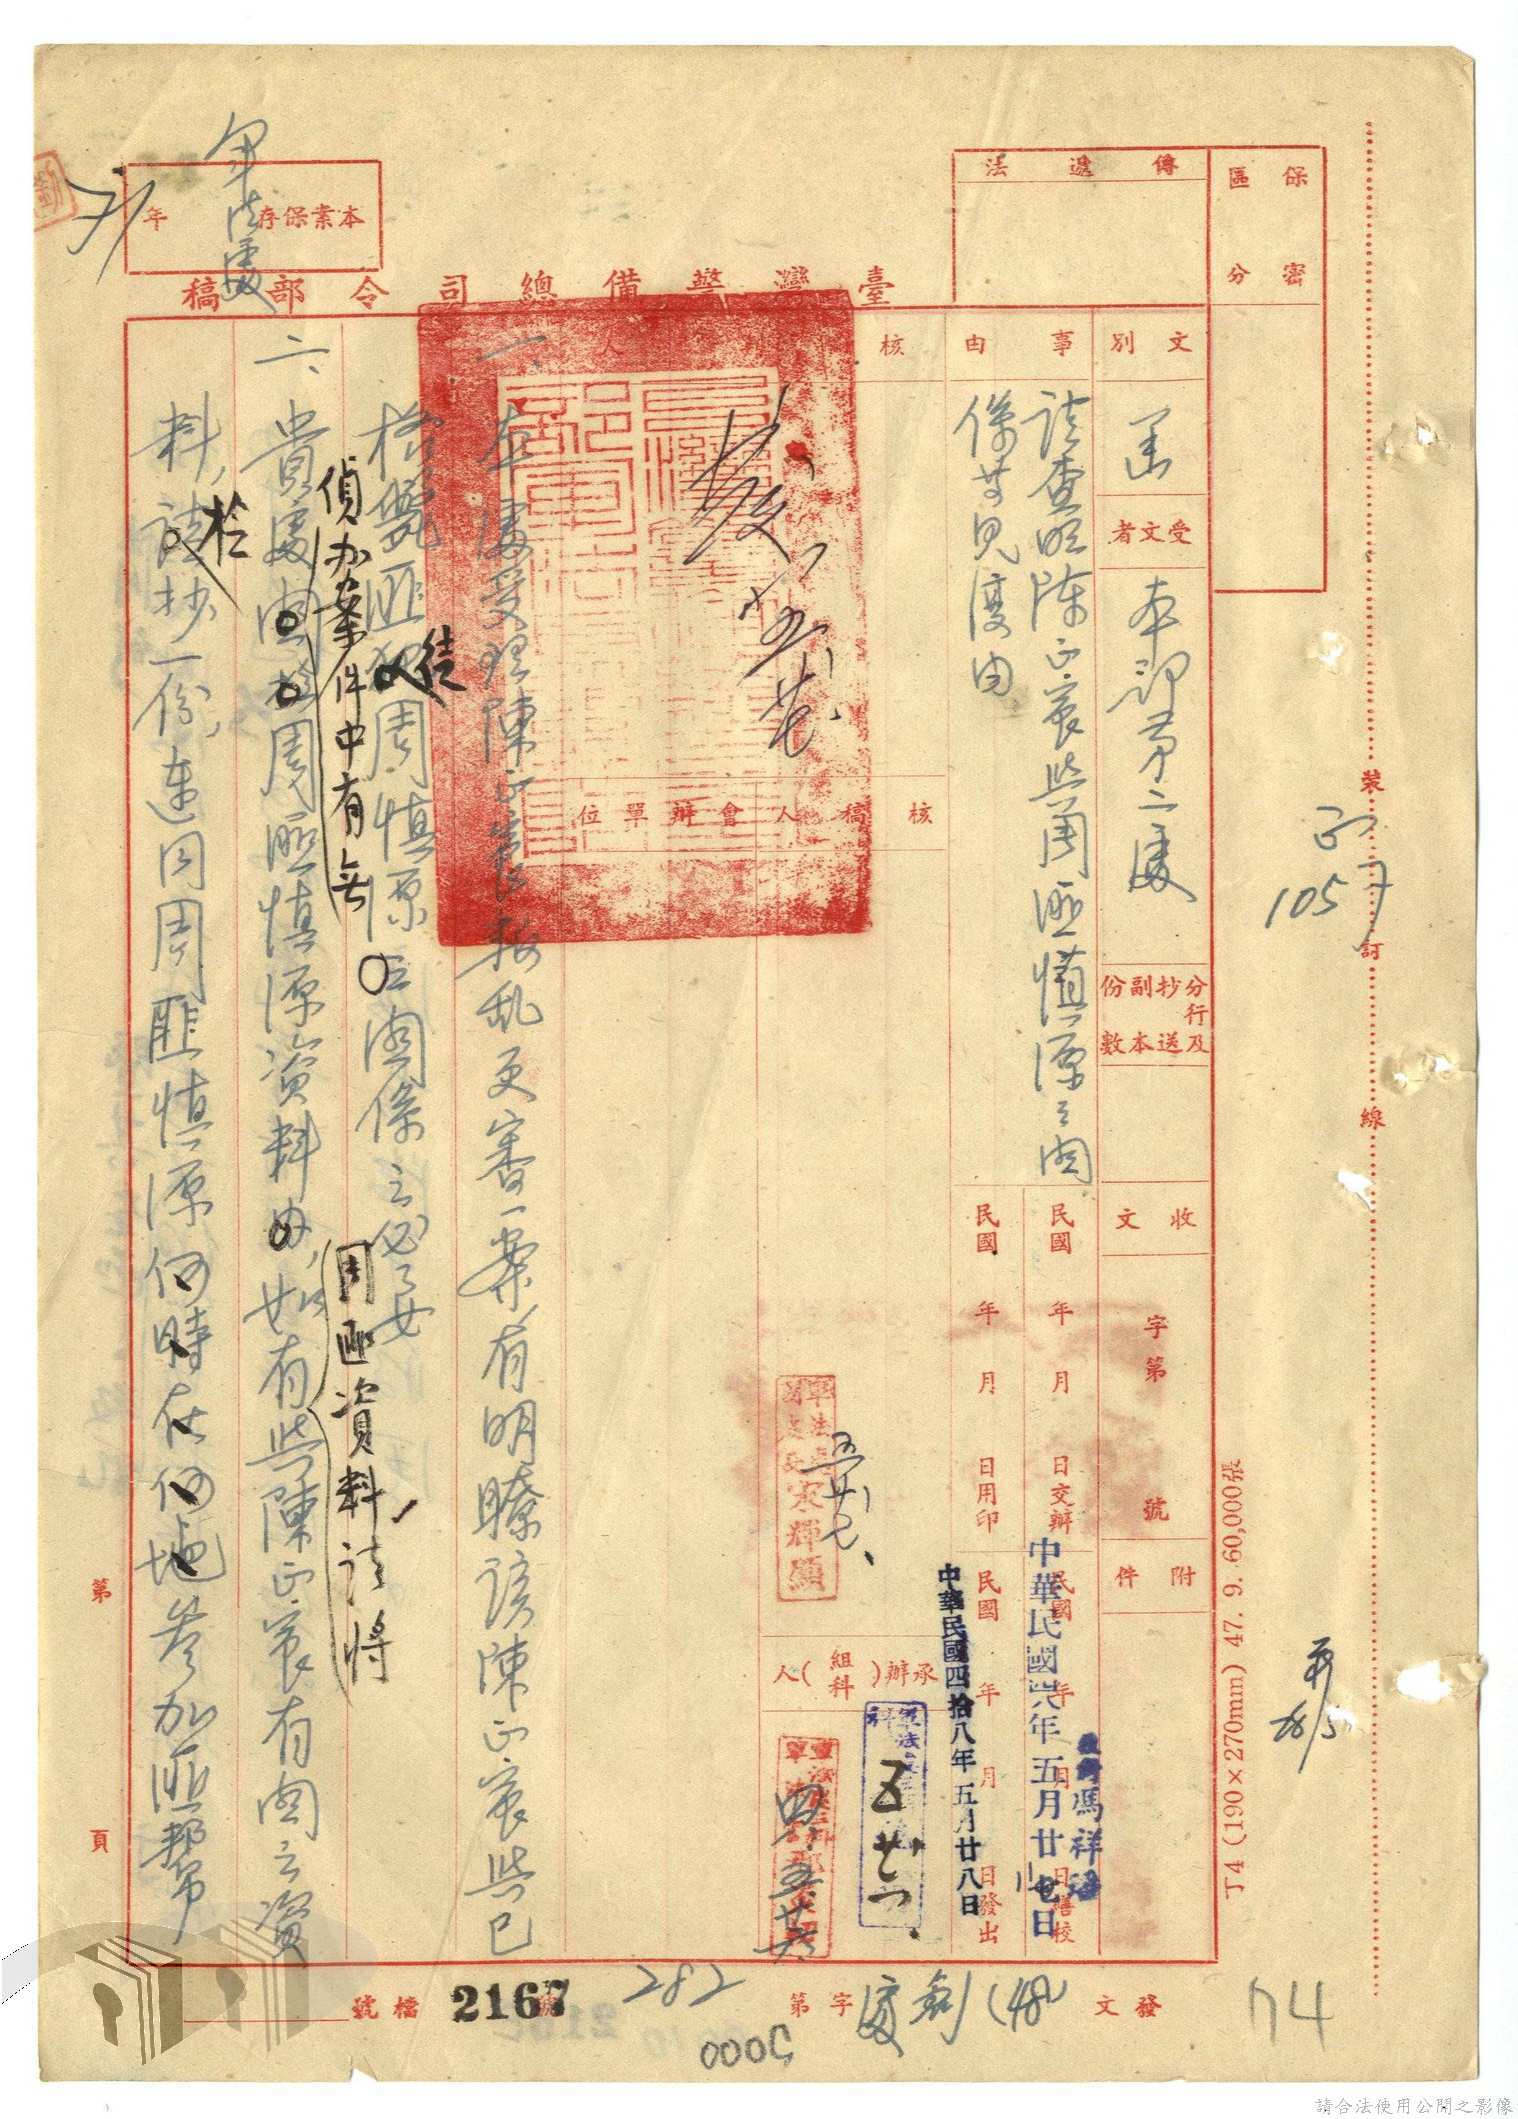 保密
區分
傳遞法
本案保存 年
軍法處
臺灣警備總司令部稿
文別
函
受文者
本部第二處
分行及抄送副本份數
收文
字第 號
附件
事由
請查明陳正宸與周匪慎源之關
係并見復由
民國 年 月 日交辦
民國 年 月 日繕校
民國 年 月 日用印
民國 年 月 日發出
中華民國四八年五月廿七日
中華民國四拾八年五月廿八日
馮祥
核 判 人
發
核稿人
會辦單位
承辦(組科)人
宋輝顯
五廿七
一、本處受理陳正宸叛亂更審一案,有明瞭該陳正宸與已
格斃匪徒周慎源關係之必要
二、貴處偵办案件中有無周匪慎源資料,如有與陳正宸有關之資
周匪資料,請將
料,請抄一份,連同周匪慎源於何時在何地參加匪幫
裝
訂
線
丁4 (190×270mm) 47. 9. 60,000張
105
28/5
第 頁
發文
(48)
字第
282
號
檔號
2167
5000
74
請合法使用公開之影像